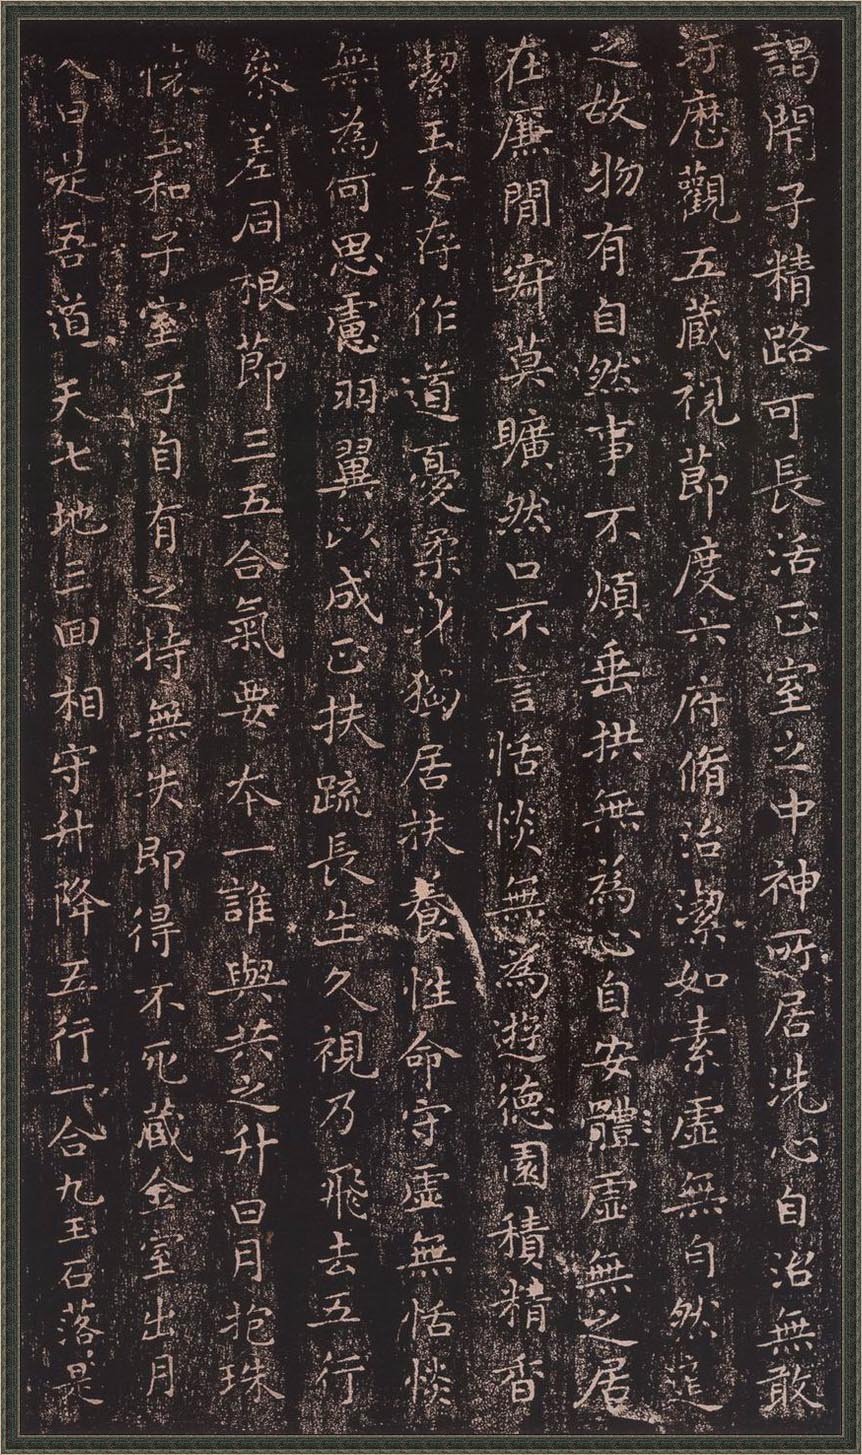 謁閉子精路可長活正室之中神所居洗心自治無敢
汙歷觀五藏視節度六府脩治潔如素虛無自然道
之故物有自然事不煩垂拱無為心自安體虛無之居
在廉閒寂莫曠然口不言恬惔無為遊德園積精香
潔玉女存作道憂柔身獨居扶養性命守虛無恬惔
無為何思慮羽翼以成正扶疏長生久視乃飛去五行
參差同根節三五合氣要本一誰與共之升日月抱珠
懷玉和子室子自有之持無失即得不死藏金室出月
入日是吾道天七地三回相守升降五行一合九玉石落落是